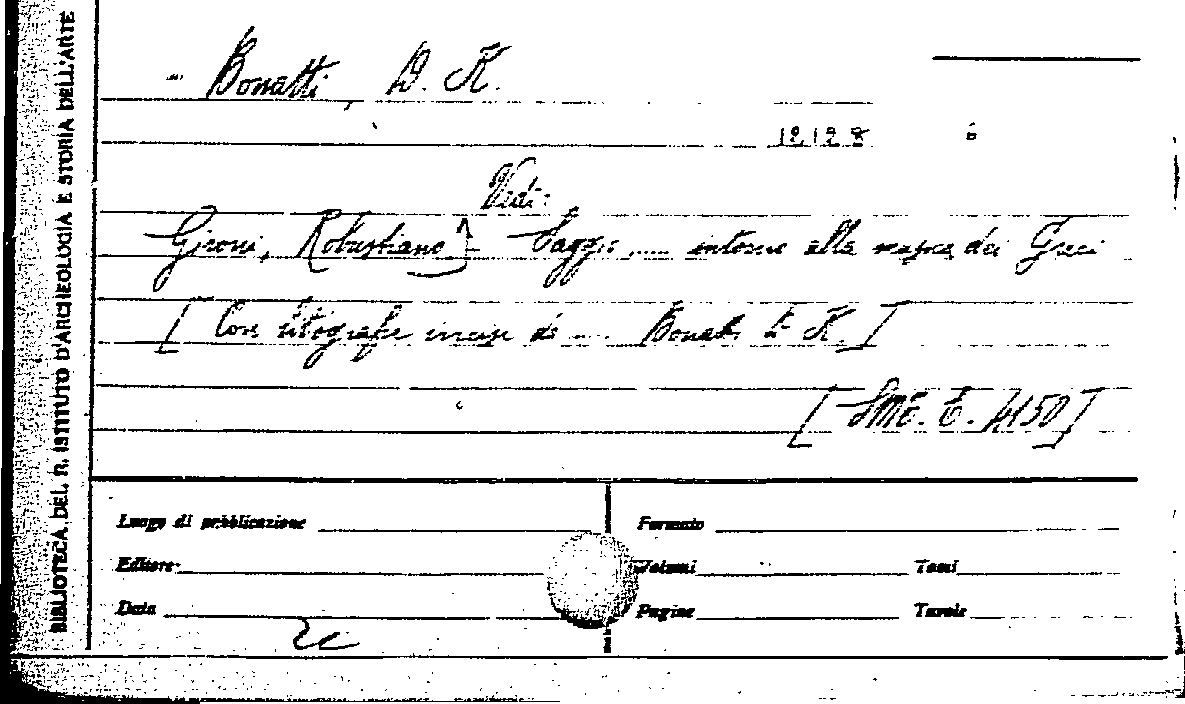 BIBLIOTECA DEL R. ISTITUTO D'ARCHEOLOGIA E STORIA DELL'ARTE
Bonatti, D. K.
12128
Vedi:
Gironi, Robustiano] - Saggio .... intorno alla musica dei Greci
[Con litografie incise da .... Bonatti D K.]
[SME. E. 4150]
Luogo di pubblicazione
Formato
Editore
Volumi
Tomi
Data
Pagine
Tavole